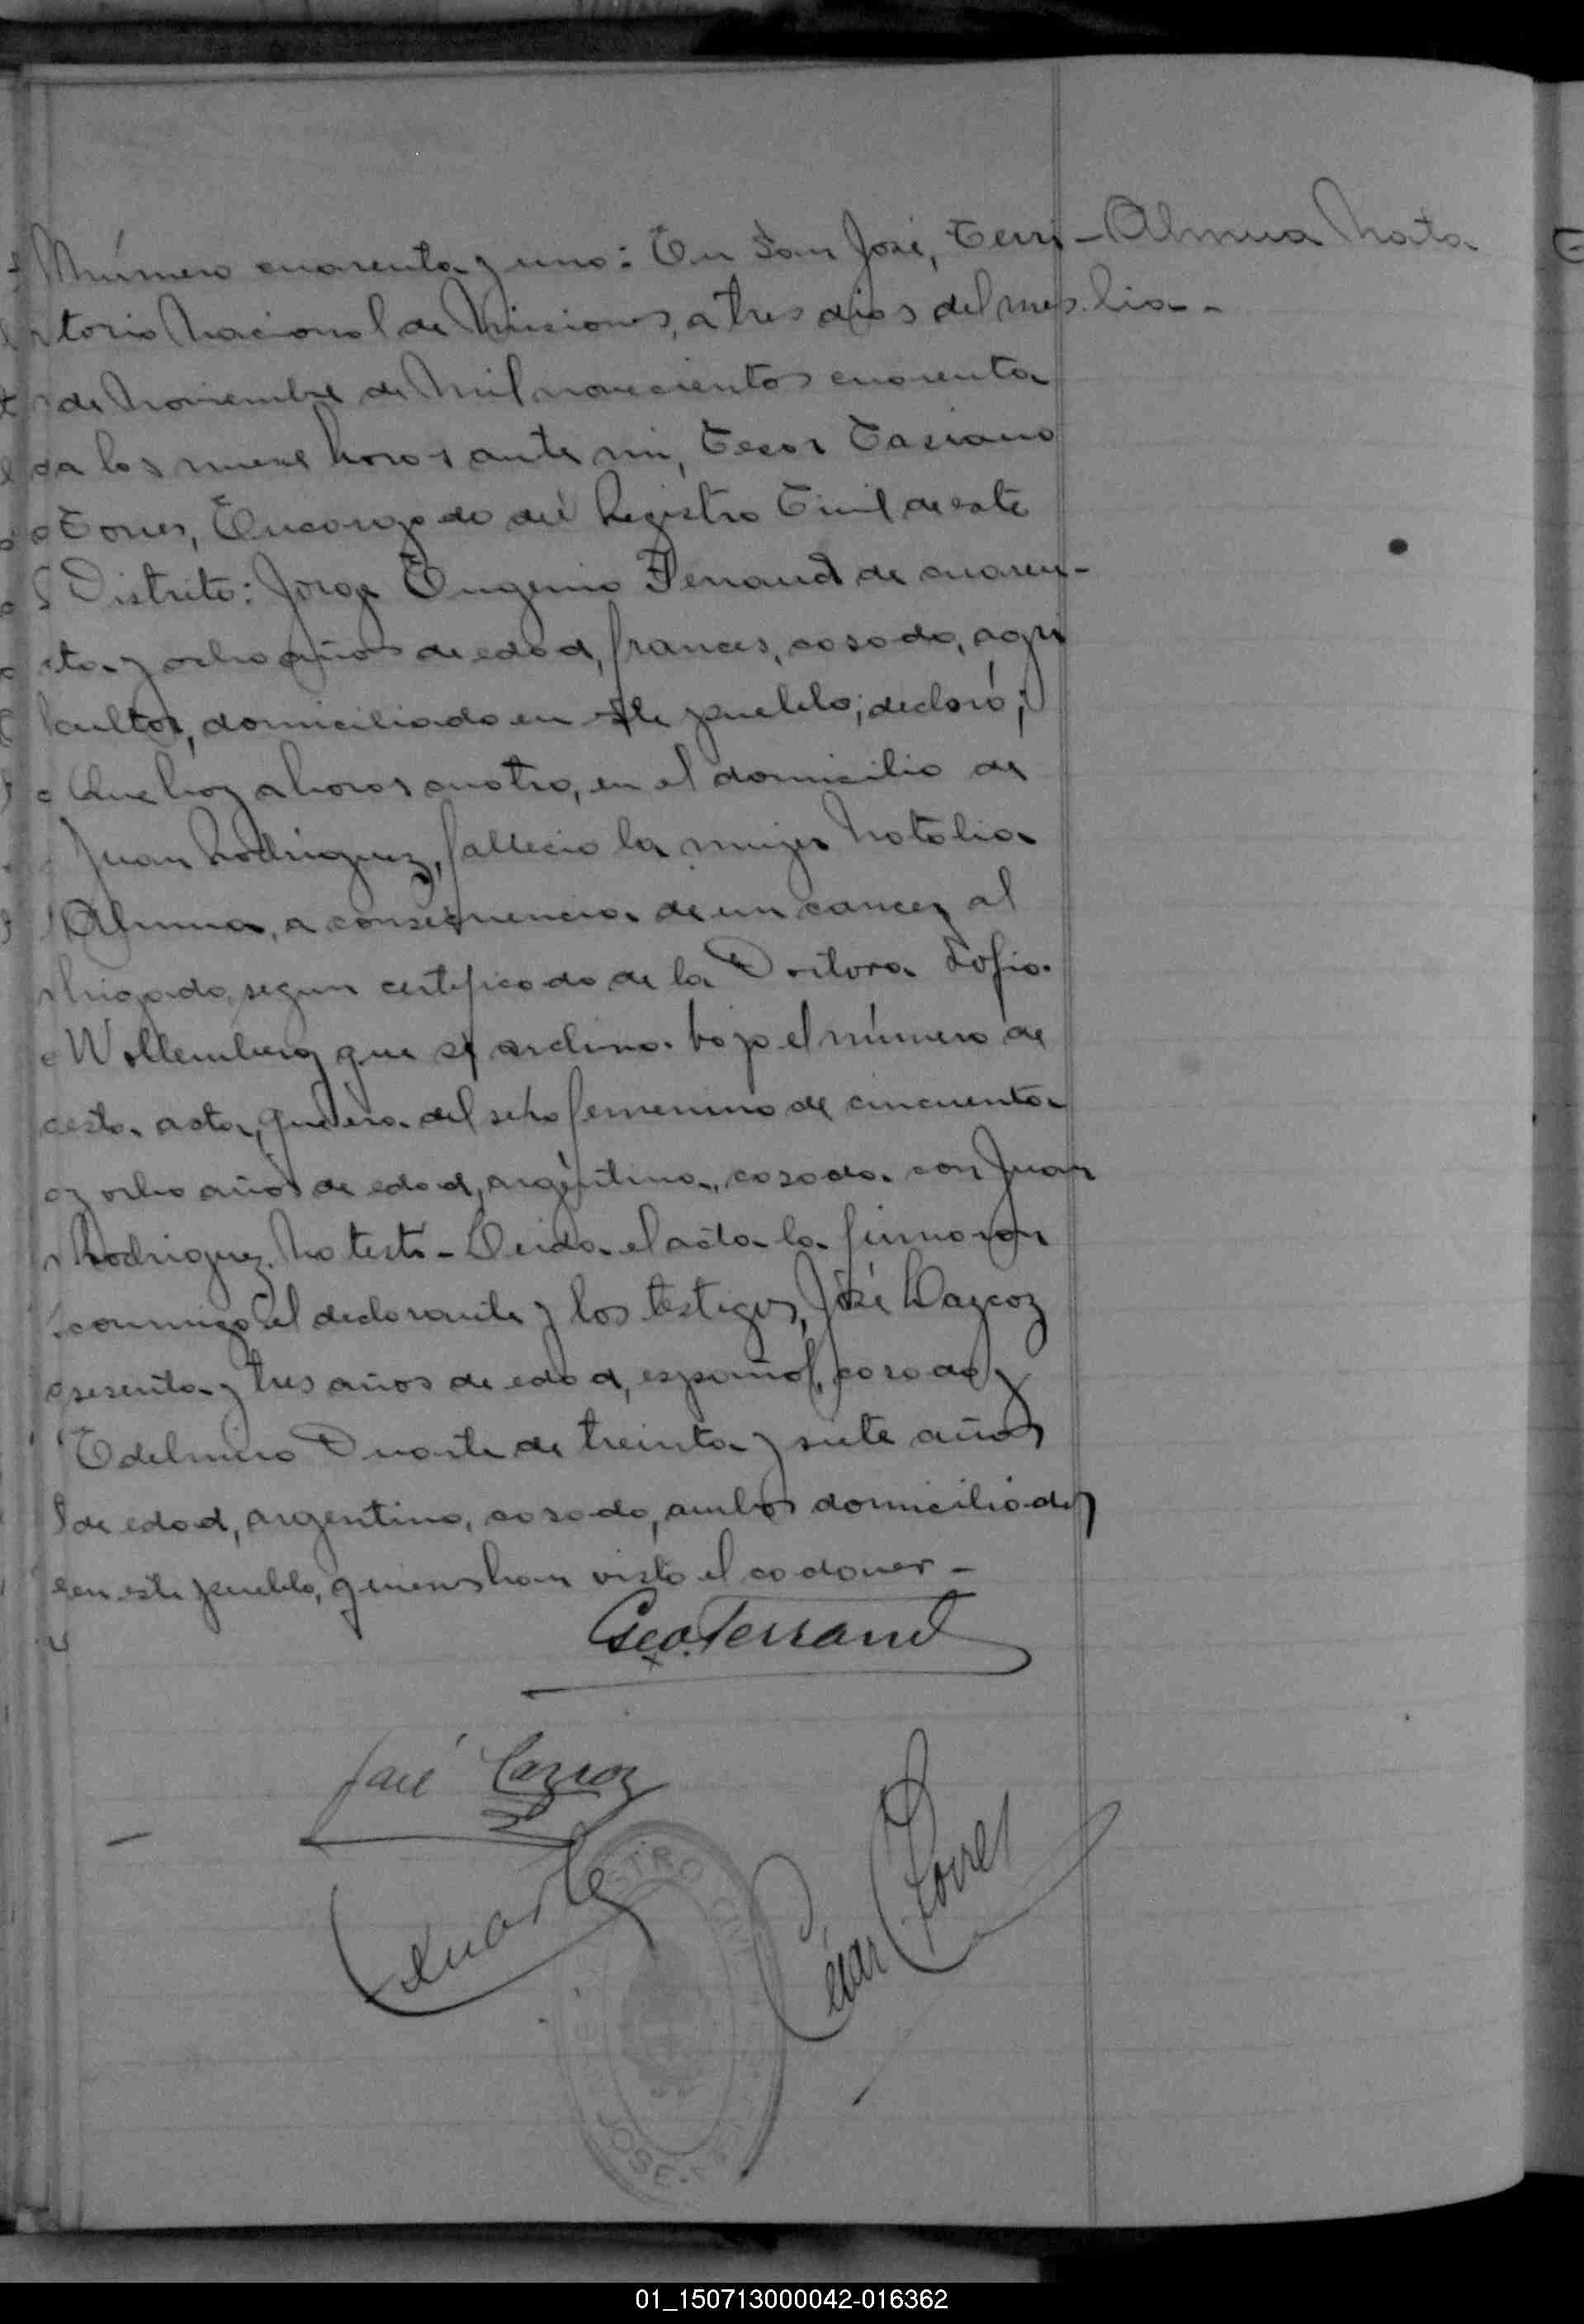 Número cuarenta y uno: En San José, Terri
torio Nacional de Misiones, a tres dias del mes
de Noviembre de Mil novecientos cuarenta
a las nueve horas ante mi, Cesar Casiano
Torres, Encargado del Registro Civil de este
Distrito: Jorge Eugenio Ferrand de cuaren-
ta y ocho años de edad, frances, casado, agri
cultor, domiciliado en este pueblo; declaró;
Que hoy a horas cuatro, en el domicilio de
Juan Rodriguez, fallecio la mujer Natalia
Almua, a consecuencia de un cancer al
higado, segun certificado de la Doctora Sofia
Wollemberg que se archiva bajo el número de
esta acta, que era del sexo femenino de cincuenta
y ocho años de edad, argentina, casada con Juan
Rodriguez. No testó - Leida el acta la firmaron
conmigo el declarante y los testigos, José
sesenta y tres años de edad, español, casado y
Edelmiro Duarte de treinta y siete años
de edad, argentino, casado, ambos domiciliados
en este pueblo, quienes han visto el cadaver -
Geo. Ferrand
José
Duarte
César C Torres
- Almua Nata
lia -
JOSE
01_150713000042-016362